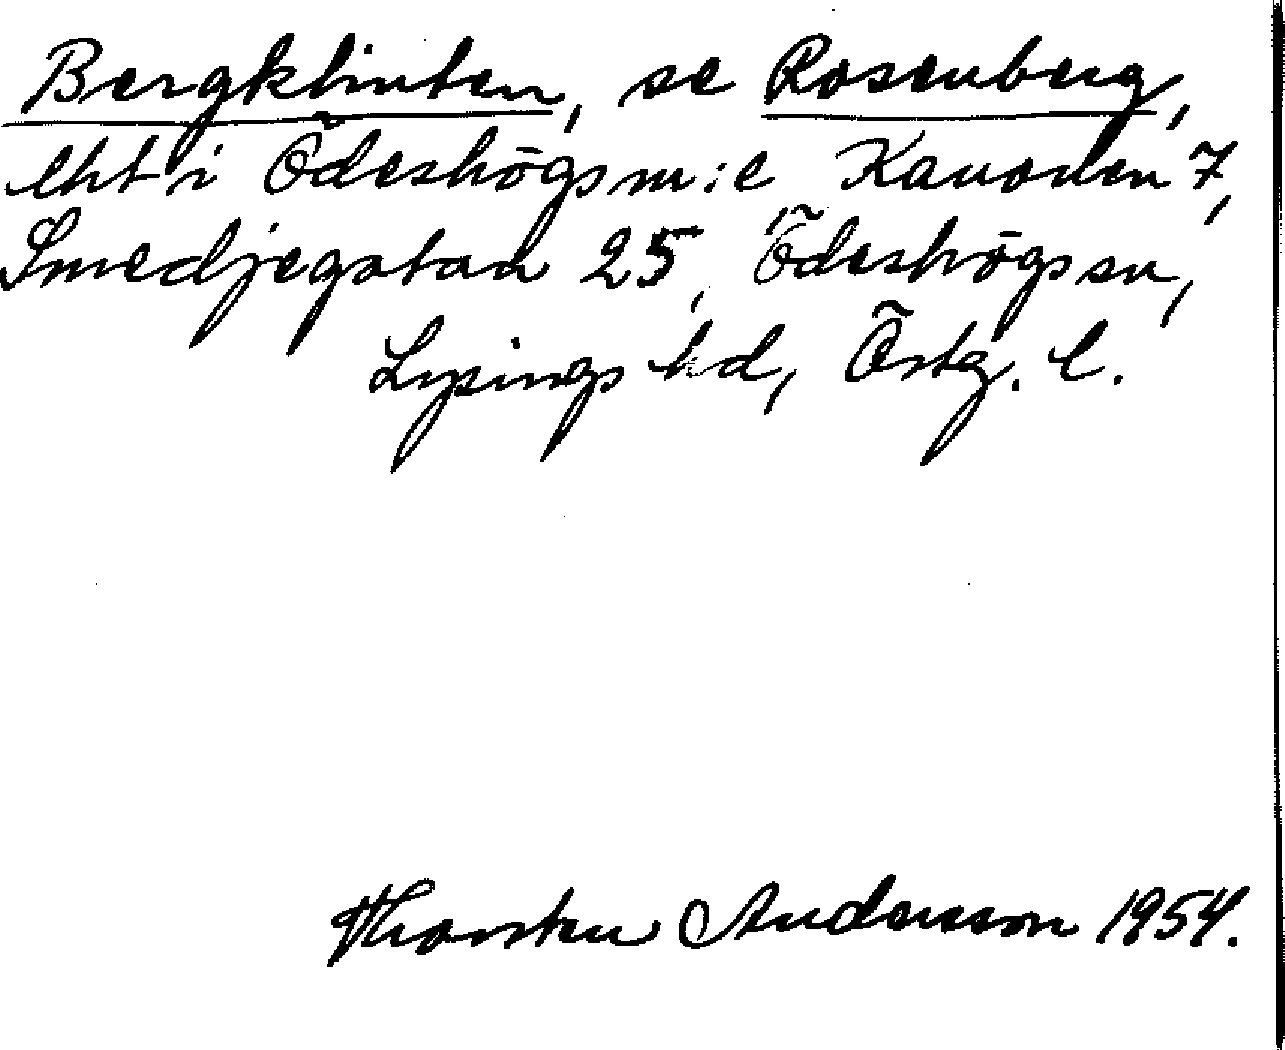 Bergklinten, se Rosenberg,
lht i Ödeshögs m:e Kanoden 7,
Smedjegatan 25, Ödeshögs sn,
Lysings hd, Östg. l.
Thorsten Andersson 1954.